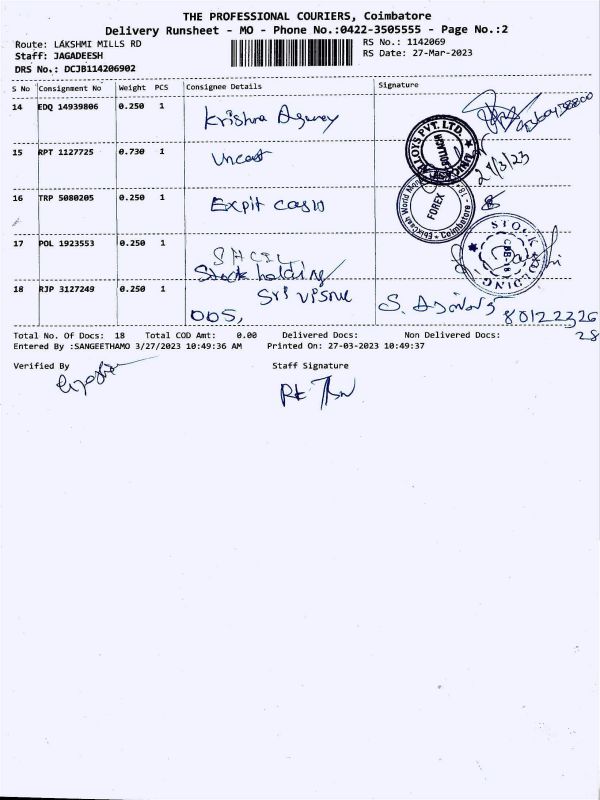 THE PROFESSIONAL COURIERS, Coimbatore
Delivery Runsheet - MO - Phone No.:0422-3505555 - Page No.:2
Route: LAKSHMI MILLS RD
RS No.: 1142069
Staff: JAGADEESH
RS Date: 27-Mar-2023
DRS No.: DCJB114206902
S No Consignment No Weight PCS Consignee Details Signature
14 EDQ 14939806 0.250 1 Krishna Agency
ALLOYS PVT. LTD.
15 RPT 1127725 0.730 1 Unicast
27/3/23
16 TRP 5080205 0.250 1 Expit casio
FOREX
Coimbatore - 18
17 POL 1923553 0.250 1 SHCIL
Stock holding
STOCK HOLDING
CBB-18
18 RJP 3127249 0.250 1 Sri Visnu
DDS,
8012232628
Total No. Of Docs: 18 Total COD Amt: 0.00 Delivered Docs: Non Delivered Docs:
Entered By :SANGEETHAMO 3/27/2023 10:49:36 AM Printed On: 27-03-2023 10:49:37
Verified By Staff Signature